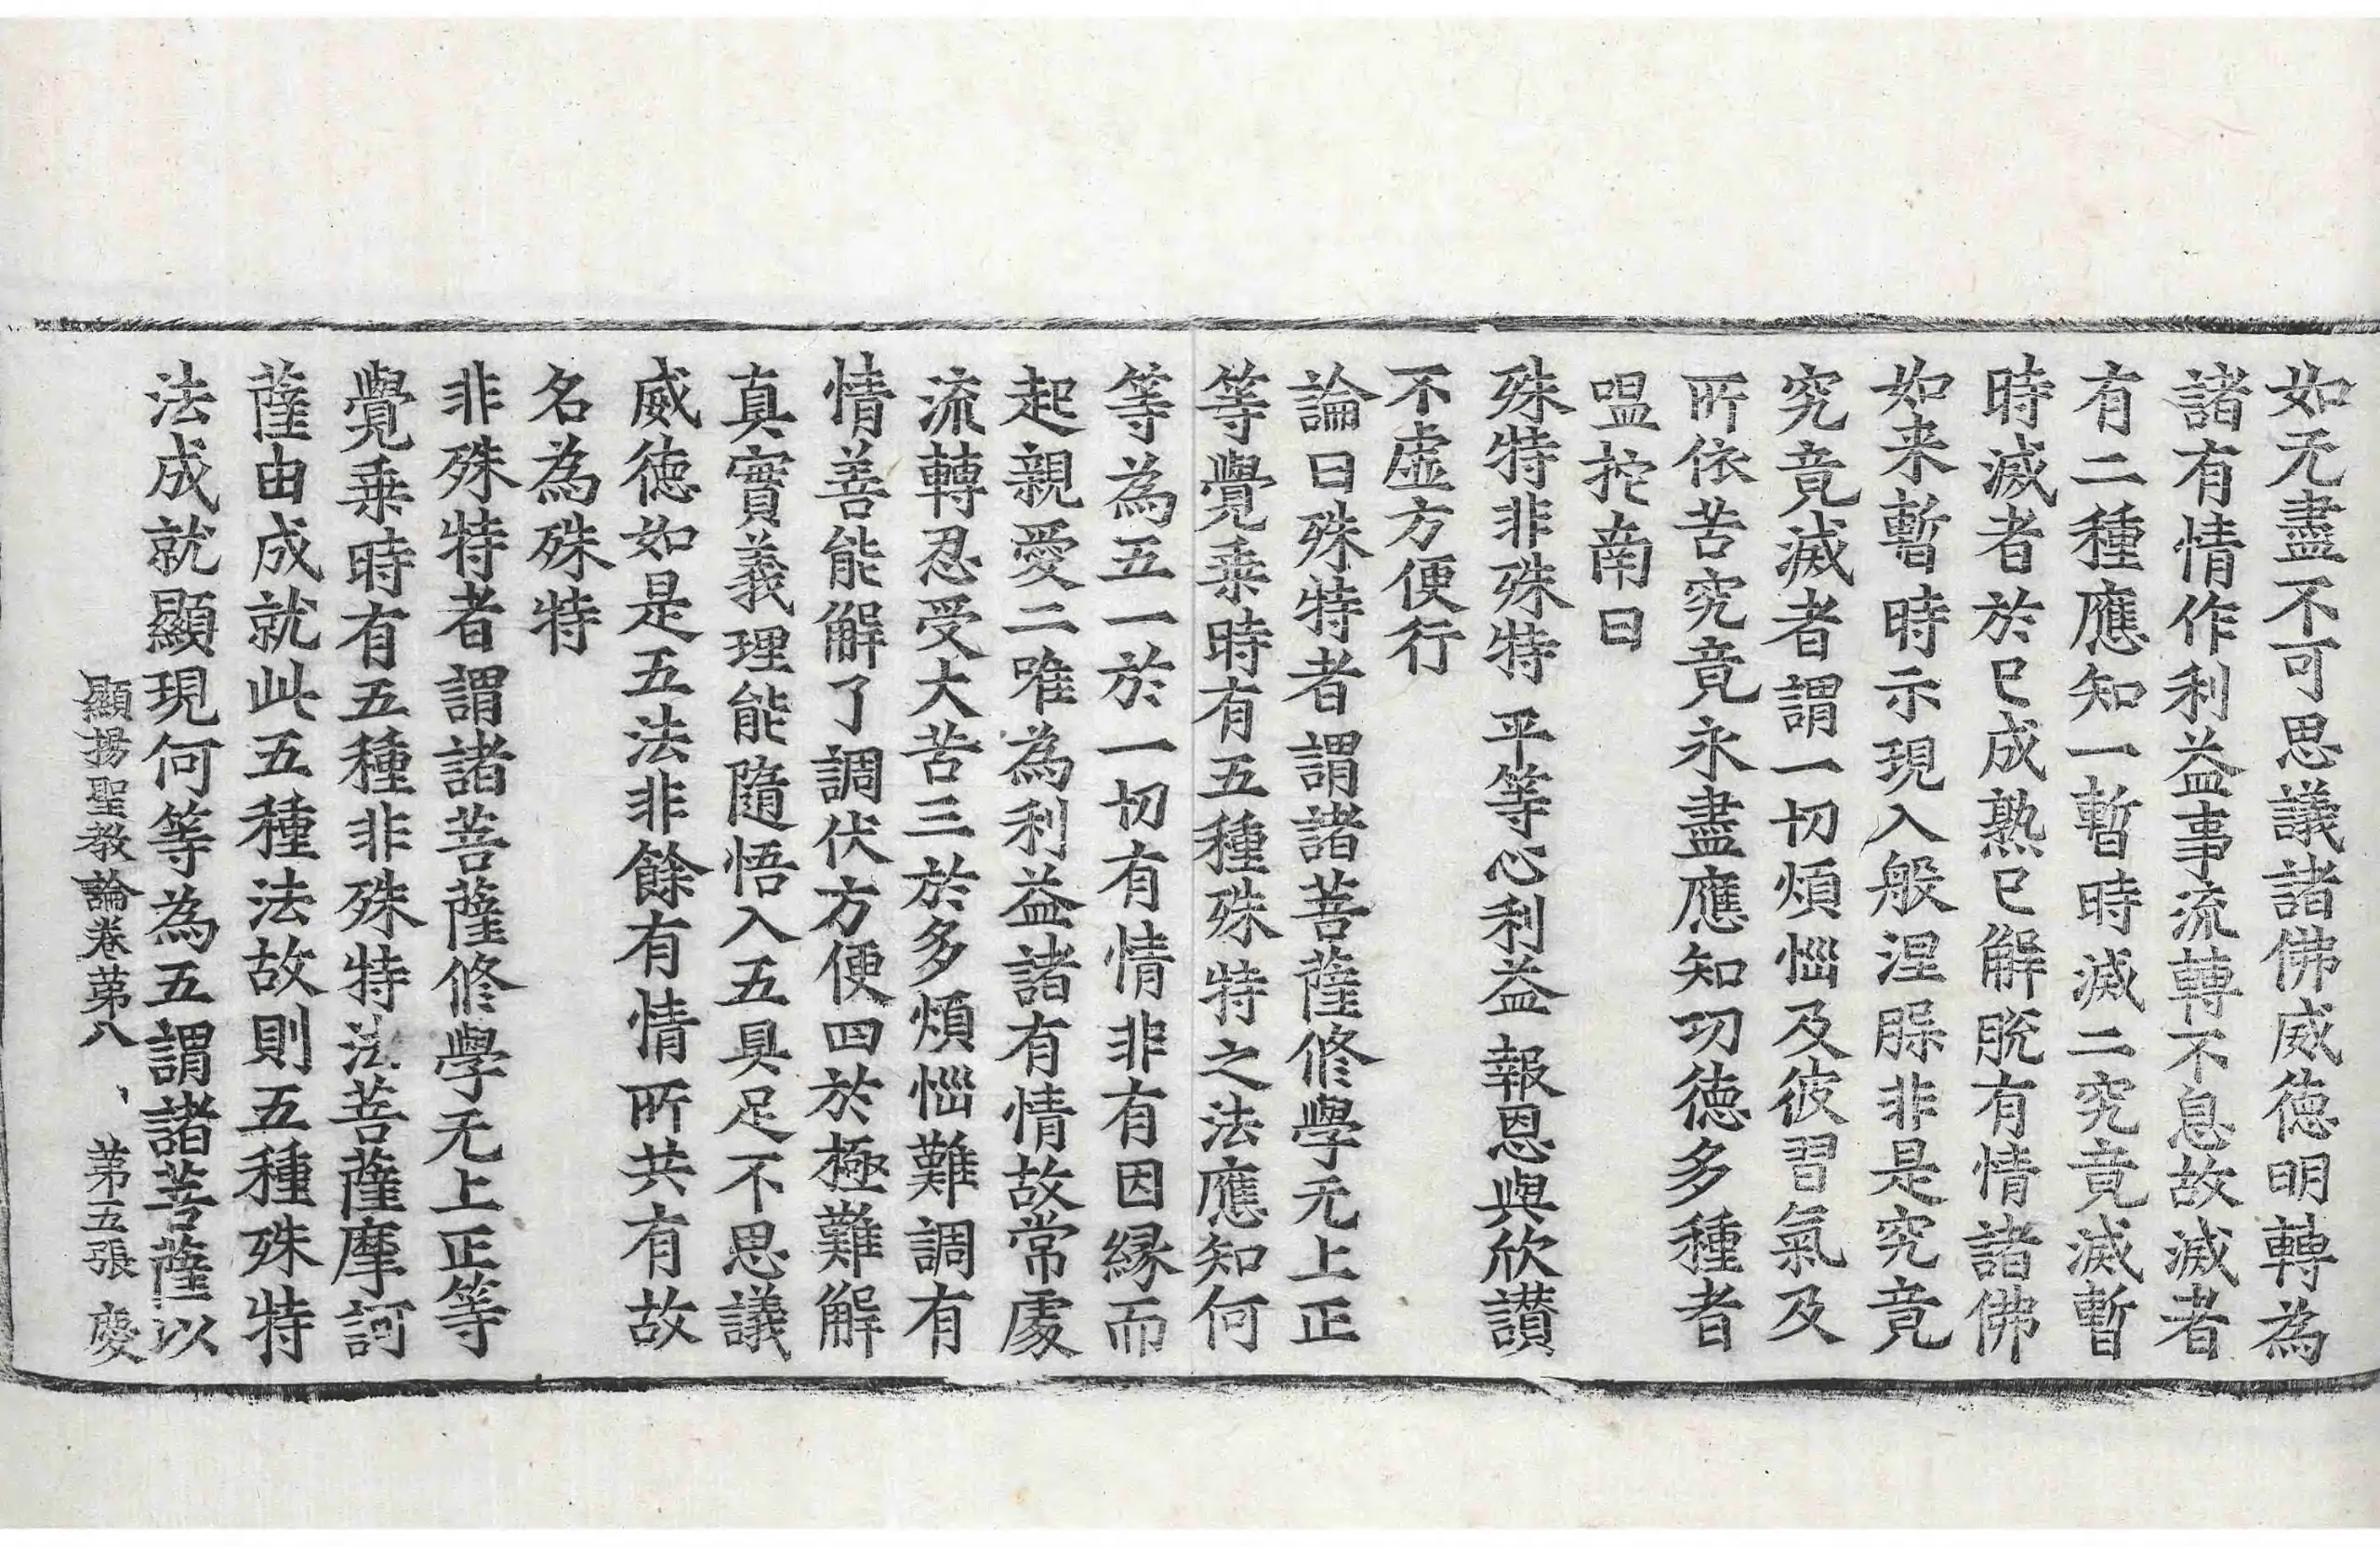 如无盡不可思議諸佛威德明轉為
諸有情作利益事流轉不息故滅者
有二種應知一暫時滅二究竟滅暫
時滅者於已成熟已解脫有情諸佛
如来暫時示現入般涅槃非是究竟
究竟滅者謂一切煩惱及彼習氣及
所依苦究竟永盡應知功德多種者
嗢拕南曰
殊特非殊特 平等心利益 報恩與欣讃
不虛方便行
論曰殊特者謂諸菩薩修學无上正
等覺乗時有五種殊特之法應知何
等為五一於一切有情非有因緣而
起親愛二唯為利益諸有情故常處
流轉忍受大苦三於多煩惱難調有
情善能解了調伏方便四於極難解
真實義理能隨悟入五具足不思議
威德如是五法非餘有情所共有故
名為殊特
非殊特者謂諸菩薩修學无上正等
覺乗時有五種非殊特法菩薩摩訶
薩由成就此五種法故則五種殊特
法成就顯現何等為五謂諸菩薩以
顯揚聖教論卷苐八 苐五張 慶